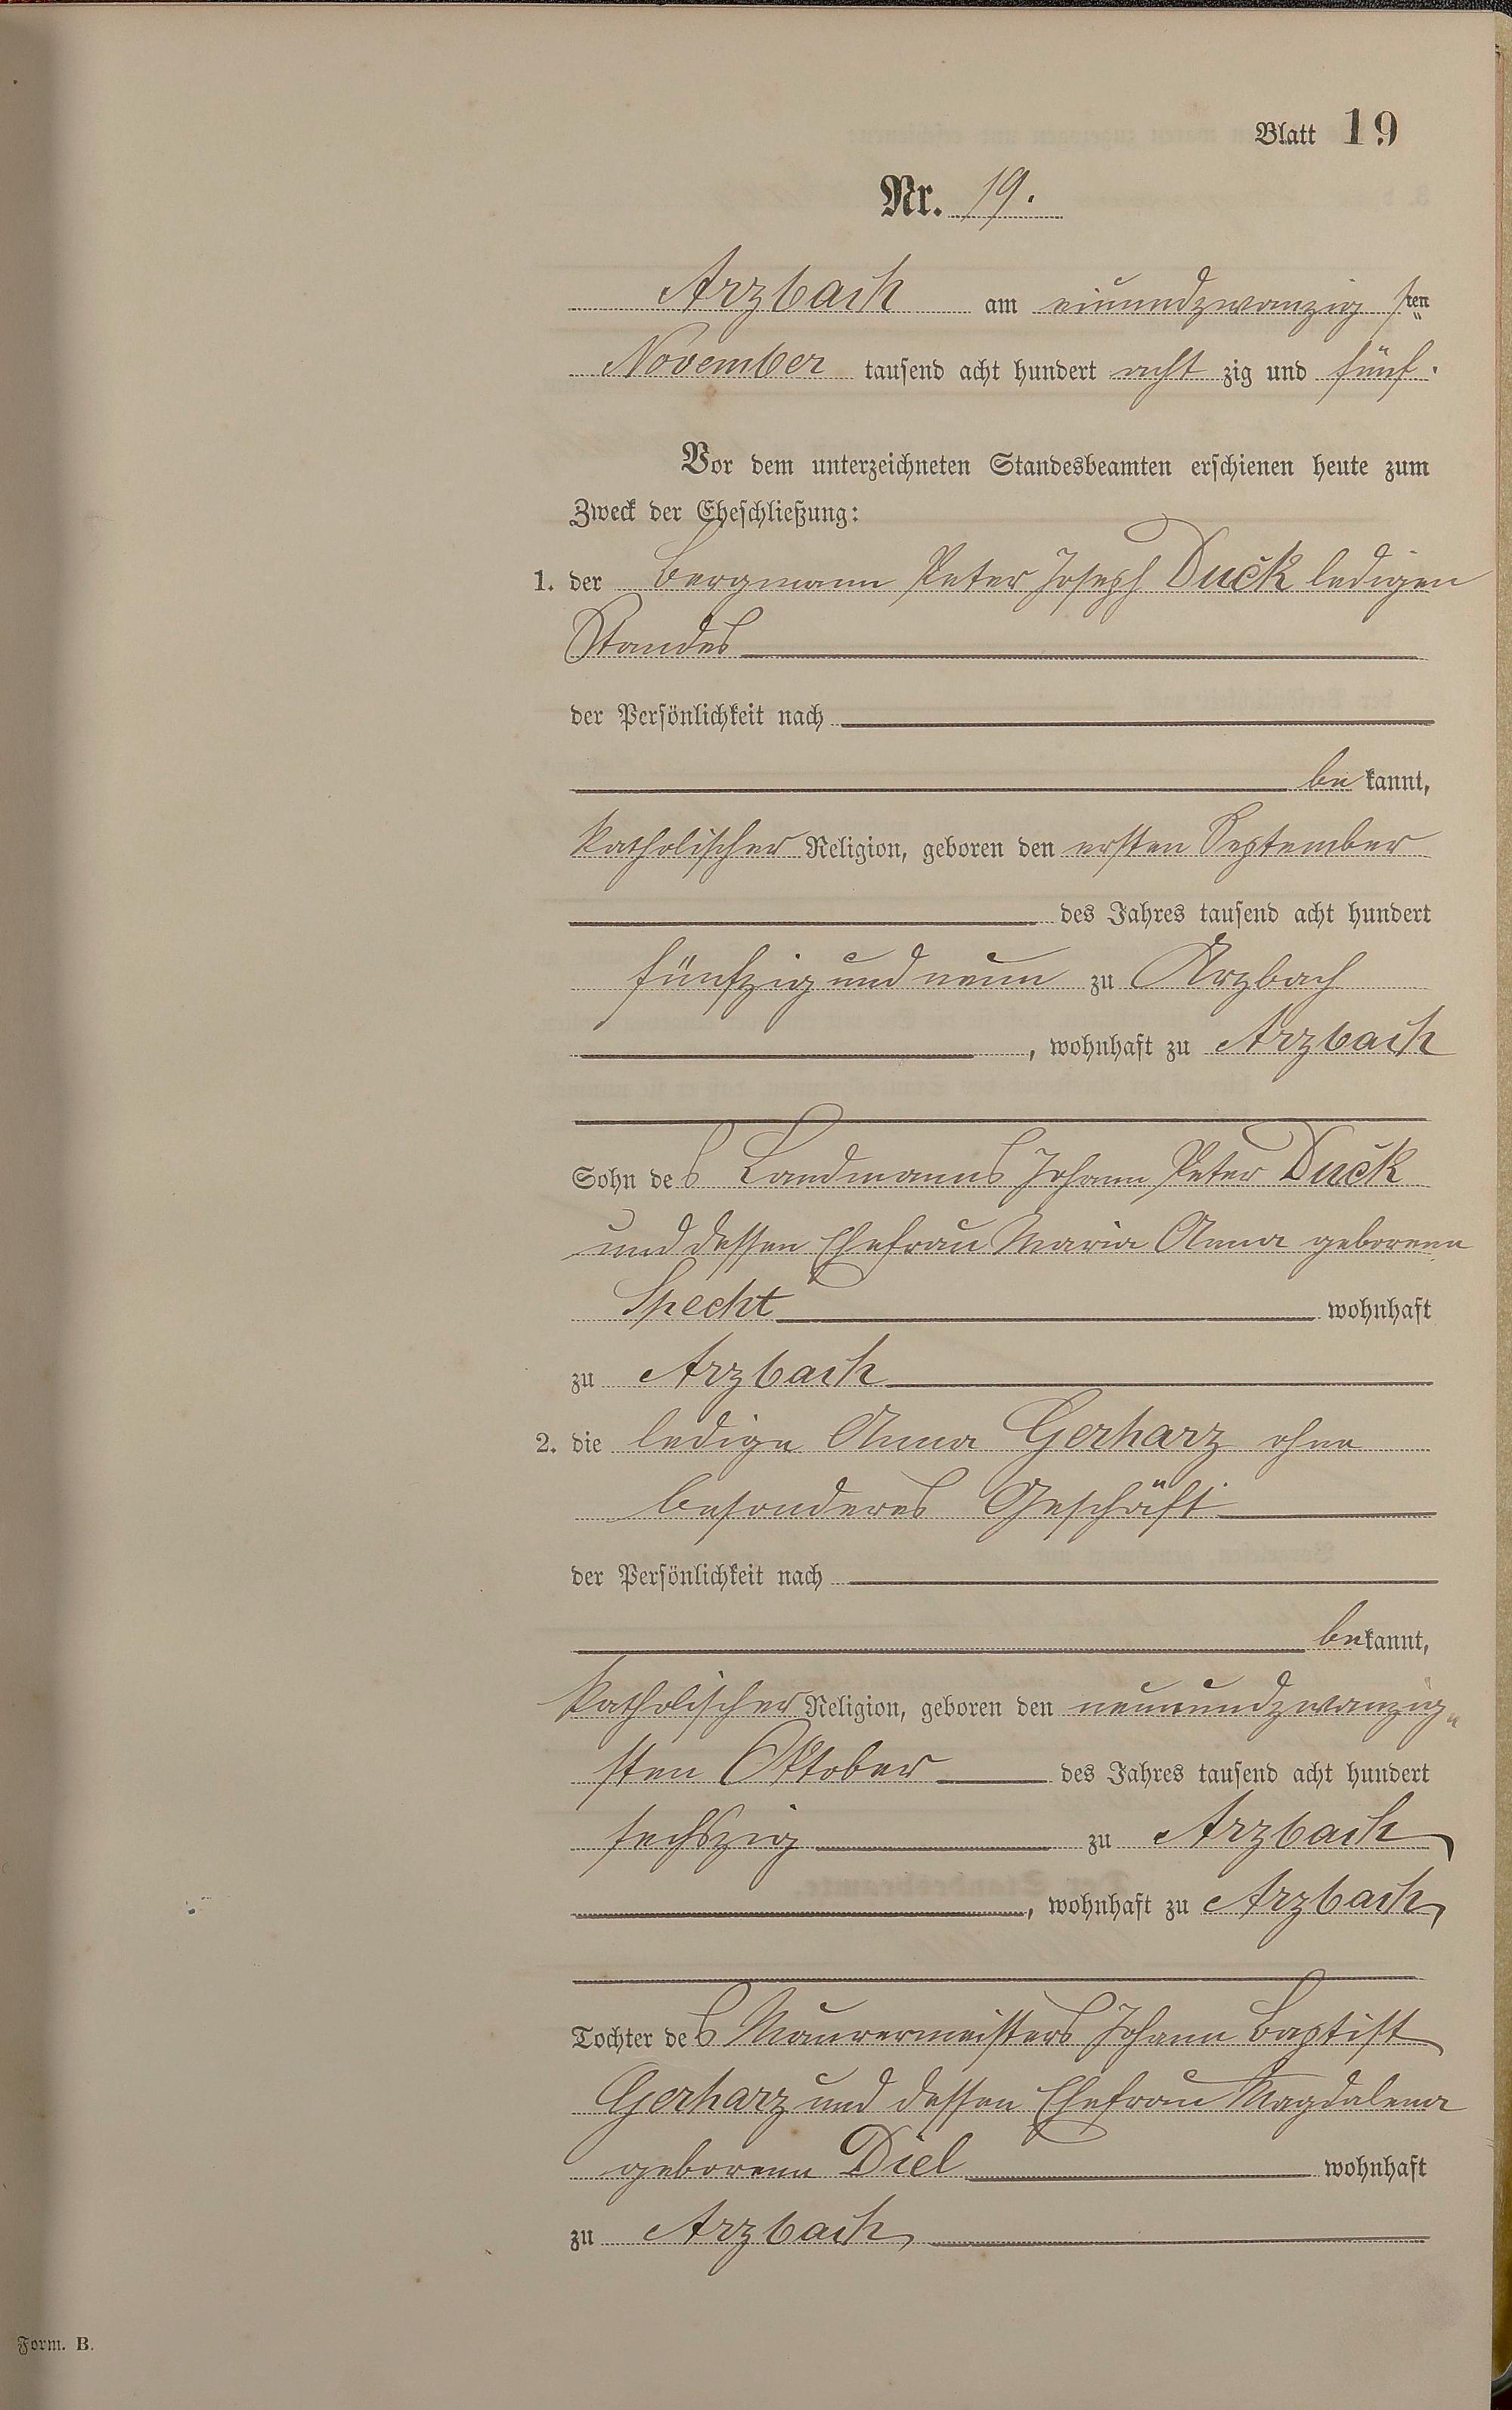 Blatt 19
Nr. 19.
Arzbach am einundzwanzig sten
November tausend acht hundert acht zig und fünf.
Vor dem unterzeichneten Standesbeamten erschienen heute zum
Zweck der Eheschließung:
1. der Bergmann Peter Joseph Duck ledigen
Standes
der Persönlichkeit nach
be kannt,
katholischer Religion, geboren den ersten September
des Jahres tausend acht hundert
fünfzig und neun zu Arzbach
, wohnhaft zu Arzbach
Sohn des Landmanns Johann Peter Duck
und dessen Ehefrau Maria Anna geborene
Specht wohnhaft
zu Arzbach
2. die ledige Anna Gerharz ohne
besonderes Geschäft
der Persönlichkeit nach
bekannt,
katholischer Religion, geboren den neunundzwanzig„
sten Oktober des Jahres tausend acht hundert
sechszig zu Arzbach
, wohnhaft zu Arzbach
Tochter des Maurermeisters Johann Baptist
Gerharz und dessen Ehefrau Magdalena
geborene Diel wohnhaft
zu Arzbach
Form. B.